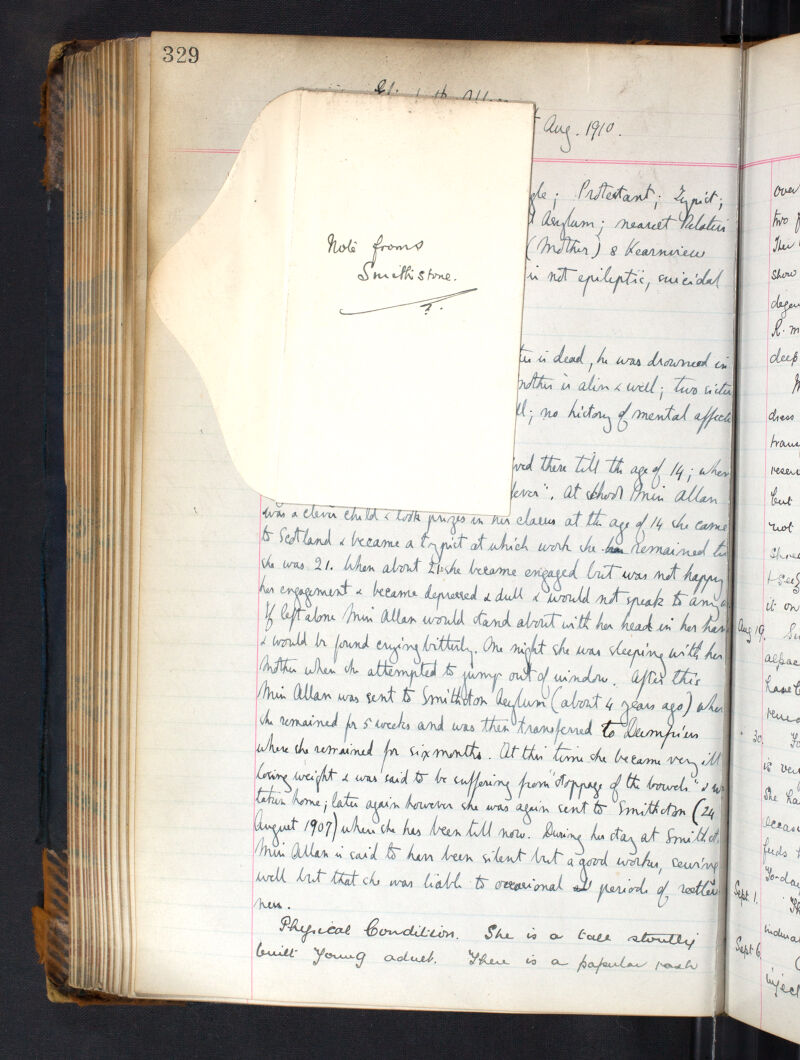 329
Aug. 1910.
gle; Protestant; Typist;
Asylum; nearest Relative
(Mother) 8 Kearnview
is not epileptic, suicidal
is dead, he was drowned in
mother is alive & well; two sisters
ll; no history of mental affect
ved there till the age of 14; when
fever". At school Miss Allan
was a clever child & took prizes in her classes at the age of 14 she came
to Scotland & became a typist at which work she remained till
she was 21. When about 21 she became engaged but was not happy
her engagement & became depressed & dull & would not speak to any
If left alone Miss Allan would stand about with her head in her han
& would be found crying bitterly. One night she was sleeping with her
Mother when she attempted to jump out of window. After this
Miss Allan was sent to Smithston Asylum (about 4 years ago) wher
she remained for 5 weeks and was then transferred to
where she remained for six months. At this time she became very ill
losing weight & was said to be suffering from "stoppage of the bowels" &
taken home; later again however she was again sent to Smithston (24
August 1907) where she has been till now. During her stay at Smithst
Miss Allan is said to have been silent but a good worker, sewing
well but that she was liable to occasional periods of restless
ness.
Physical Condition. She is a tall stoutly
built young adult. There is a papular rash
Note from
Smithistone.
?.
over
two
show
degen
R. m
deep
dress
reser
but
not
it on
Aug 19.
30
is ver
She ha
occas
feeds
To-day
Sept. 1.
Sept 6
inject